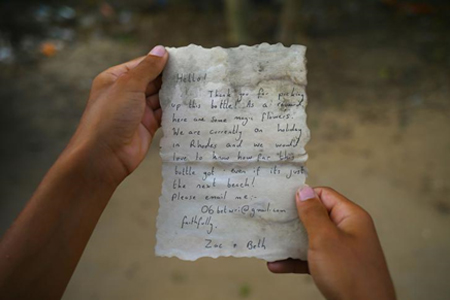 Hello!
Thank you for picking
up this bottle! As a reward
here are some magic flowers.
We are currently on holiday
in Rhodes and we would
love to know how far this
bottle got - even if its just
the next beach!
Please email me:-
@gmail.com
faithfully,
Zac + Beth